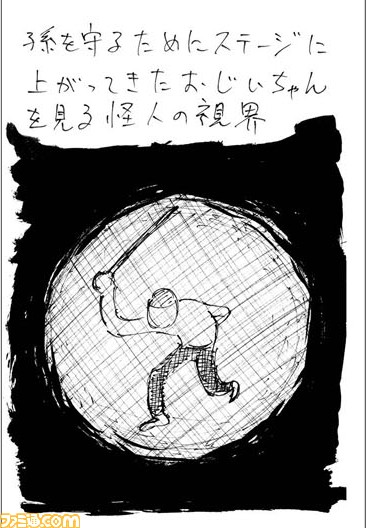 孫を守るためにステージに
上がってきたおじいちゃん
を見る怪人の視界
ファミ通.com